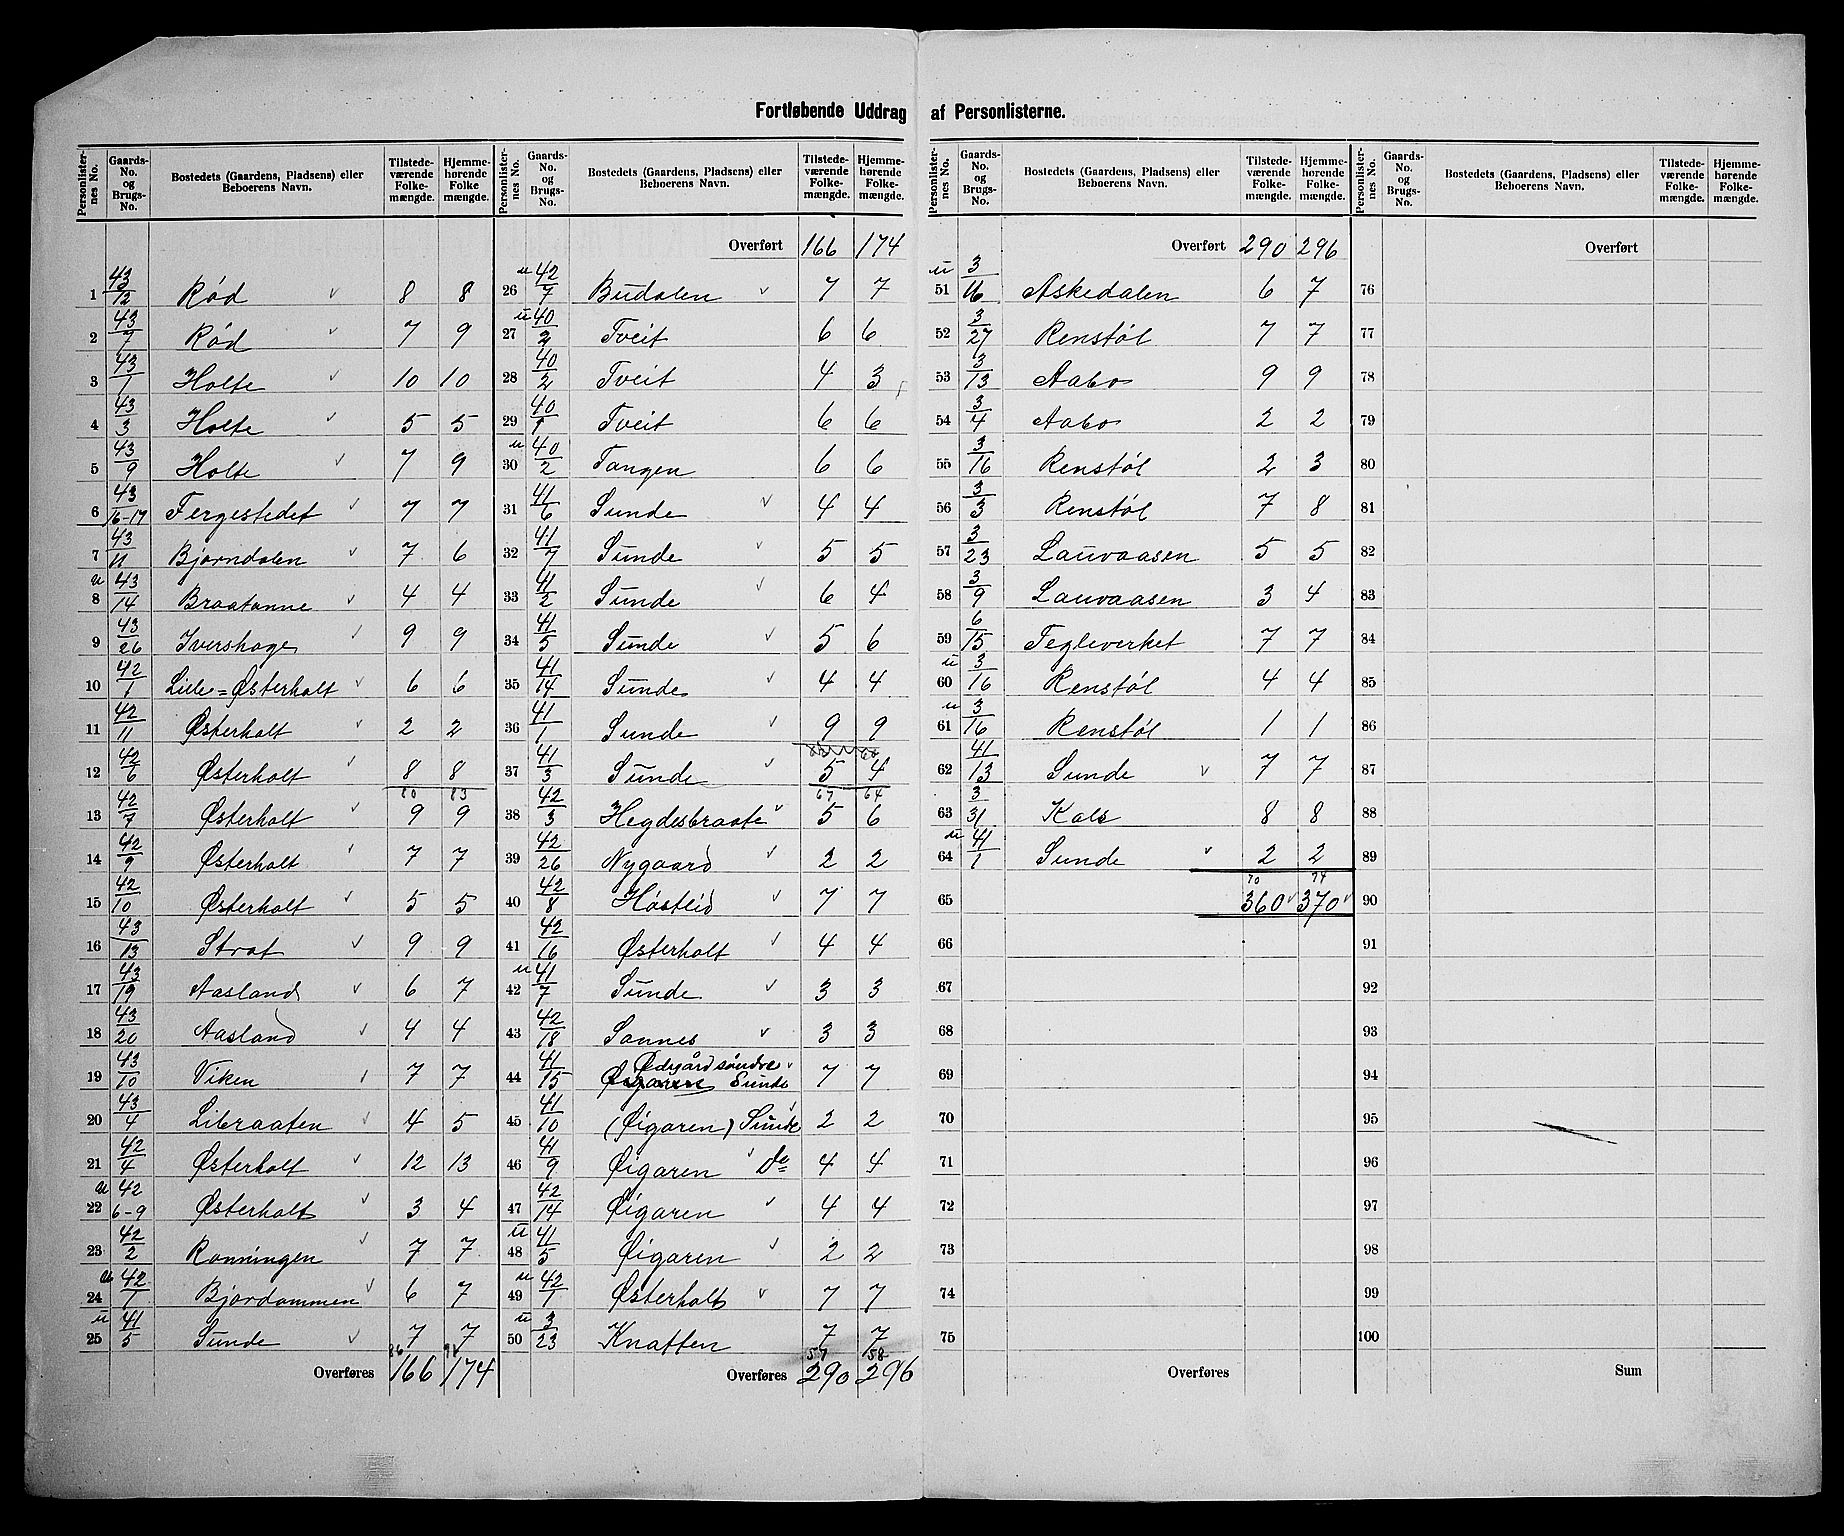 Fortløbende Uddrag af Personlisterne.
Personlister-nes No. | Gaards-No. og Brugs-No. | Bostedets (Gaardens, Pladsens) eller Beboerens Navn. | Tilstede-værende Folke-mængde. | Hjemme-hørende Folke mængde.
1 43/12 Rød v 8 8
2 43/7 Rød v 7 9
3 43/1 Holte v 10 10
4 43/3 Holte v 5 5
5 43/9 Holte v 7 9
6 43/16-17 Fergestedet v 7 7
7 43/11 Bjørndalen v 7 6
u 8 43/14 Braatanne v 4 4
9 43/26 Ivershage v 9 9
10 42/1 Lille=Østerholt v 6 6
11 42/11 Østerholt v 2 2
12 42/6 Østerholt v 8 8
80 83
13 42/7 Østerholt v 9 9
14 42/9 Østerholt v 7 7
15 42/10 Østerholt v 5 5
16 43/13 Strat v 9 9
17 43/19 Aasland v 6 7
18 43/20 Aasland v 4 4
19 43/10 Viken 7 7
20 43/4 Libraaten v 4 5
21 42/4 Østerholt v 12 13
u 22 42/6-9 Østerholt v 3 4
23 42/2 Rønningen v 7 7
u 24 42/1 Bjørdammen v 6 7
u 25 41/5 Sunde v 7 7
86 91
Overføres 166 174
Personlister-nes No. | Gaards-No. og Brugs-No. | Bostedets (Gaardens, Pladsens) eller Beboerens Navn. | Tilstede-værende Folke-mængde. | Hjemme-hørende Folke-mængde.
Overført 166 174
u 26 42/7 Budalen v 7 7
u 27 40/2 Tveit 6 6
28 40/2 Tveit 4 3
29 40/1 Tveit 6 6
u 30 40/2 Tangen 6 6
31 41/6 Sunde v 4 4
32 41/7 Sunde v 5 5
33 41/2 Sunde v 6 4
34 41/5 Sunde v 5 6
35 41/14 Sunde v 4 4
36 41/1 Sunde v 9 9
37 41/3 Sunde v 5 4
67 64
38 42/3 Hegdesbraate v 5 6
39 42/26 Nygaard v 2 2
40 42/8 Høstlid v 7 7
41 42/16 Østerholt v 4 4
u 42 41/7 Sunde v 3 3
43 42/18 Sannes v 3 3
44 41/15 Ødegård søndre v
Øigaren Sunde 7 7
45 41/10 (Øigaren) Sunde v 2 2
46 41/9 Øigaren v Do 4 4
47 42/14 Øigaren v 4 4
u 48 41/5 Øigaren v 2 2
u 49 42/1 Østerholt v 7 7
u 50 3/23 Knatten 7 7
57 58
Overføres 290 296
Personlister-nes No. | Gaards-No. og Brugs-No. | Bostedets (Gaardens, Pladsens) eller Beboerens Navn. | Tilstede-værende Folke-mængde. | Hjemme-hørende Folke-mængde.
Overført 290 296
u 51 3/16 Askedalen 6 7
52 3/27 Renstøl 7 7
53 3/13 Aabo 9 9
54 3/4 Aabo 2 2
55 3/16 Renstøl 2 3
56 3/3 Renstøl 7 8
57 3/23 Lauvaasen 5 5
58 3/9 Lauvaasen 3 4
59 6/15 Tegleverket 7 7
u 60 3/16 Renstøl 4 4
u 61 3/16 Renstøl 1 1
62 41/13 Sunde v 7 7
63 3/31 Kals 8 8
u 64 41/1 Sunde v 2 2
70 74
65 360 v 370 v
66
67
68
69
70
71
72
73
74
75
Overføres
Personlister-nes No. | Gaards-No. og Brugs-No. | Bostedets (Gaardens, Pladsens) eller Beboerens Navn. | Tilstede-værende Folke-mængde. | Hjemme-hørende Folke-mængde.
Overført
76
77
78
79
80
81
82
83
84
85
86
87
88
89
90
91
92
93
94
95
96
97
98
99
100
Sum